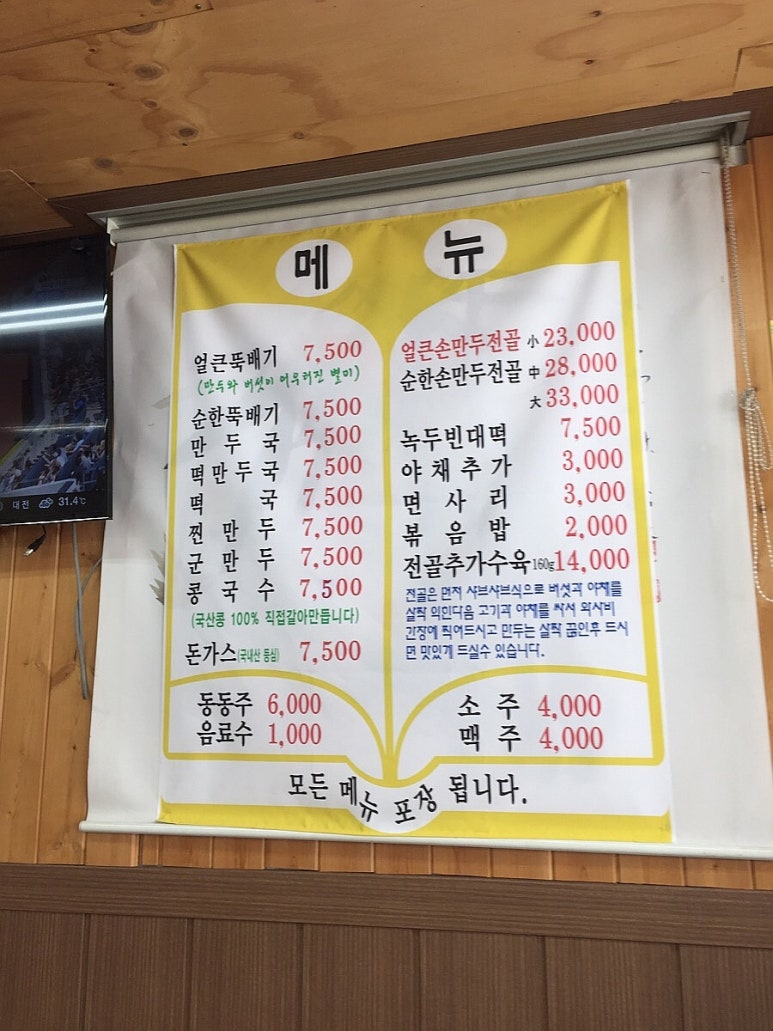 메뉴
얼큰뚝배기 7,500
(만두와 버섯이 어우러진 별미)
순한뚝배기 7,500
만두국 7,500
떡만두국 7,500
떡국 7,500
찐만두 7,500
군만두 7,500
콩국수 7,500
(국산콩 100% 직접갈아만듭니다)
돈가스(국내산 등심) 7,500
동동주 6,000
음료수 1,000
얼큰손만두전골 小 23,000
순한손만두전골 中 28,000
大 33,000
녹두빈대떡 7,500
야채추가 3,000
면사리 3,000
볶음밥 2,000
전골추가수육 160g 14,000
전골은 먼저 샤브샤브식으로 버섯과 야채를
살짝 익힌다음 고기과 야채를 싸서 와사비
간장에 찍어드시고 만두는 살짝 끓인후 드시
면 맛있게 드실수 있습니다.
소주 4,000
맥주 4,000
모든 메뉴 포장 됩니다.
대전 31.4℃